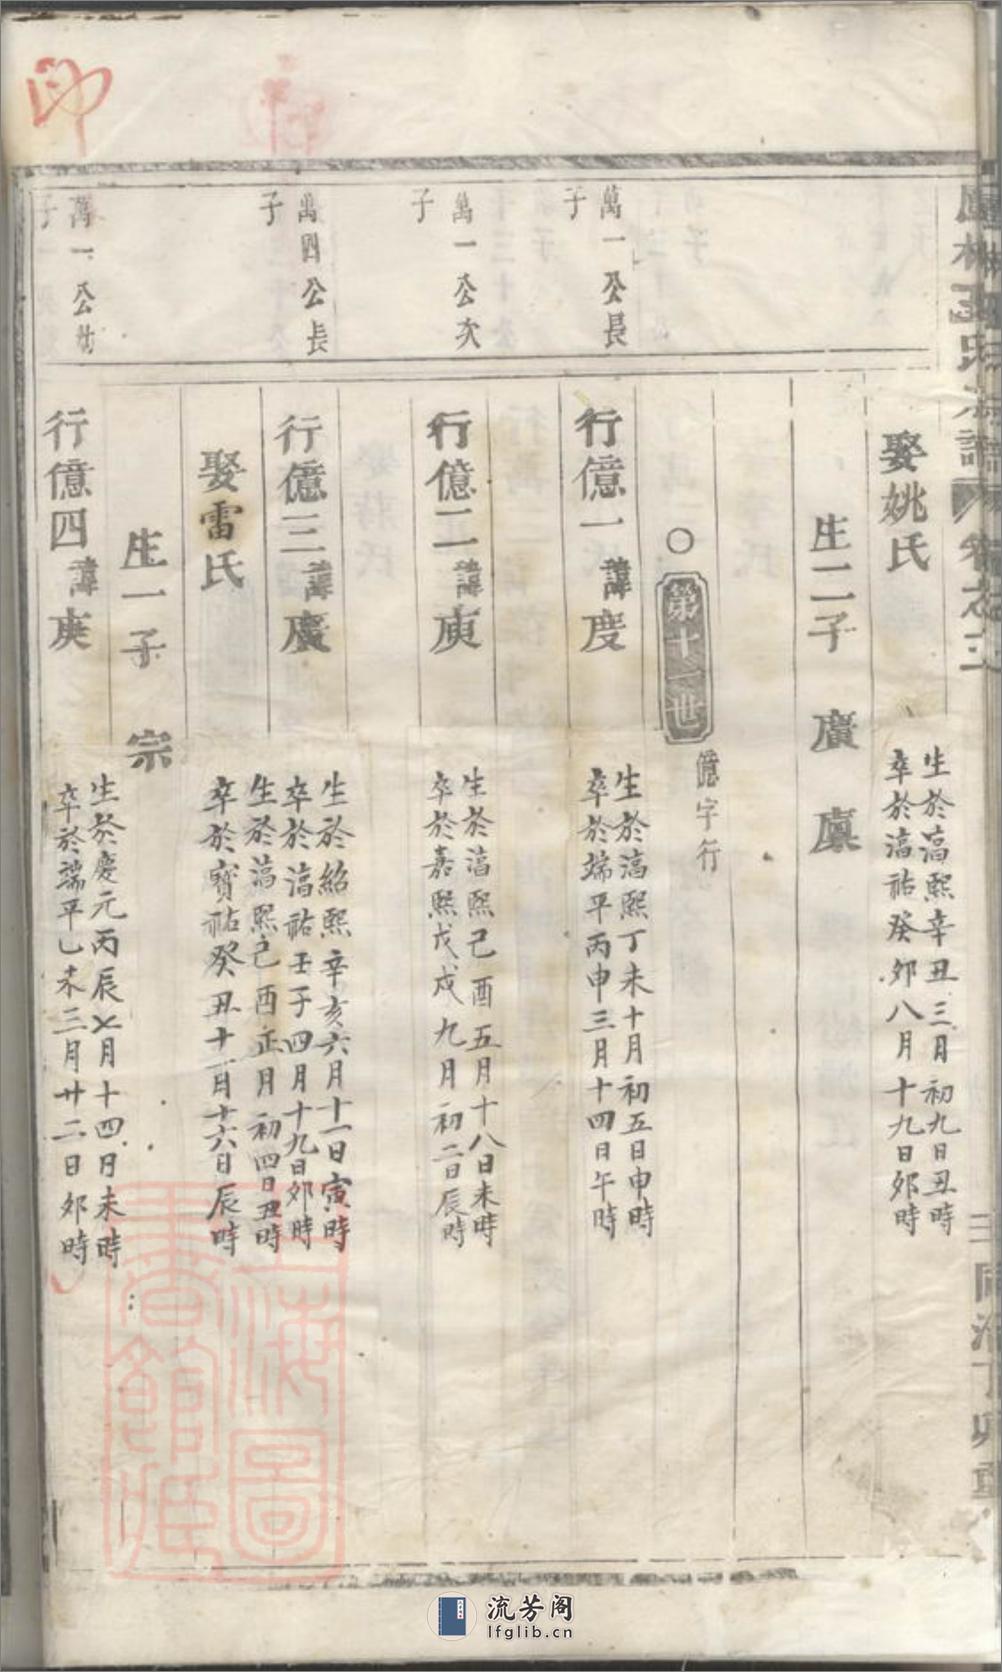 娶姚氏
生於湻熙辛丑三月初九日丑時
卒於湻祐癸卯八月十九日卯時
生二子 廣 廩
○第十一世 億字行
萬一公長
子
行億一諱度
生於湻熙丁未十月初五日申時
卒於端平丙申三月十四日午時
萬一公次
子
行億二諱庾
生於湻熙己酉五月十八日未時
卒於嘉熙戊戌九月初二日辰時
萬四公長
子
行億三諱廣
生於紹熙辛亥六月十一日寅時
卒於湻祐壬子四月十九日卯時
娶雷氏
生於湻熙己酉正月初四日丑時
卒於寶祐癸丑十一月十六日辰時
生一子 宗
萬一公
子
行億四諱庚
生於慶元丙辰七月十四日未時
卒於端平乙未三月廿二日卯時
上海圖
書館藏
流芳阁
lfglib.cn